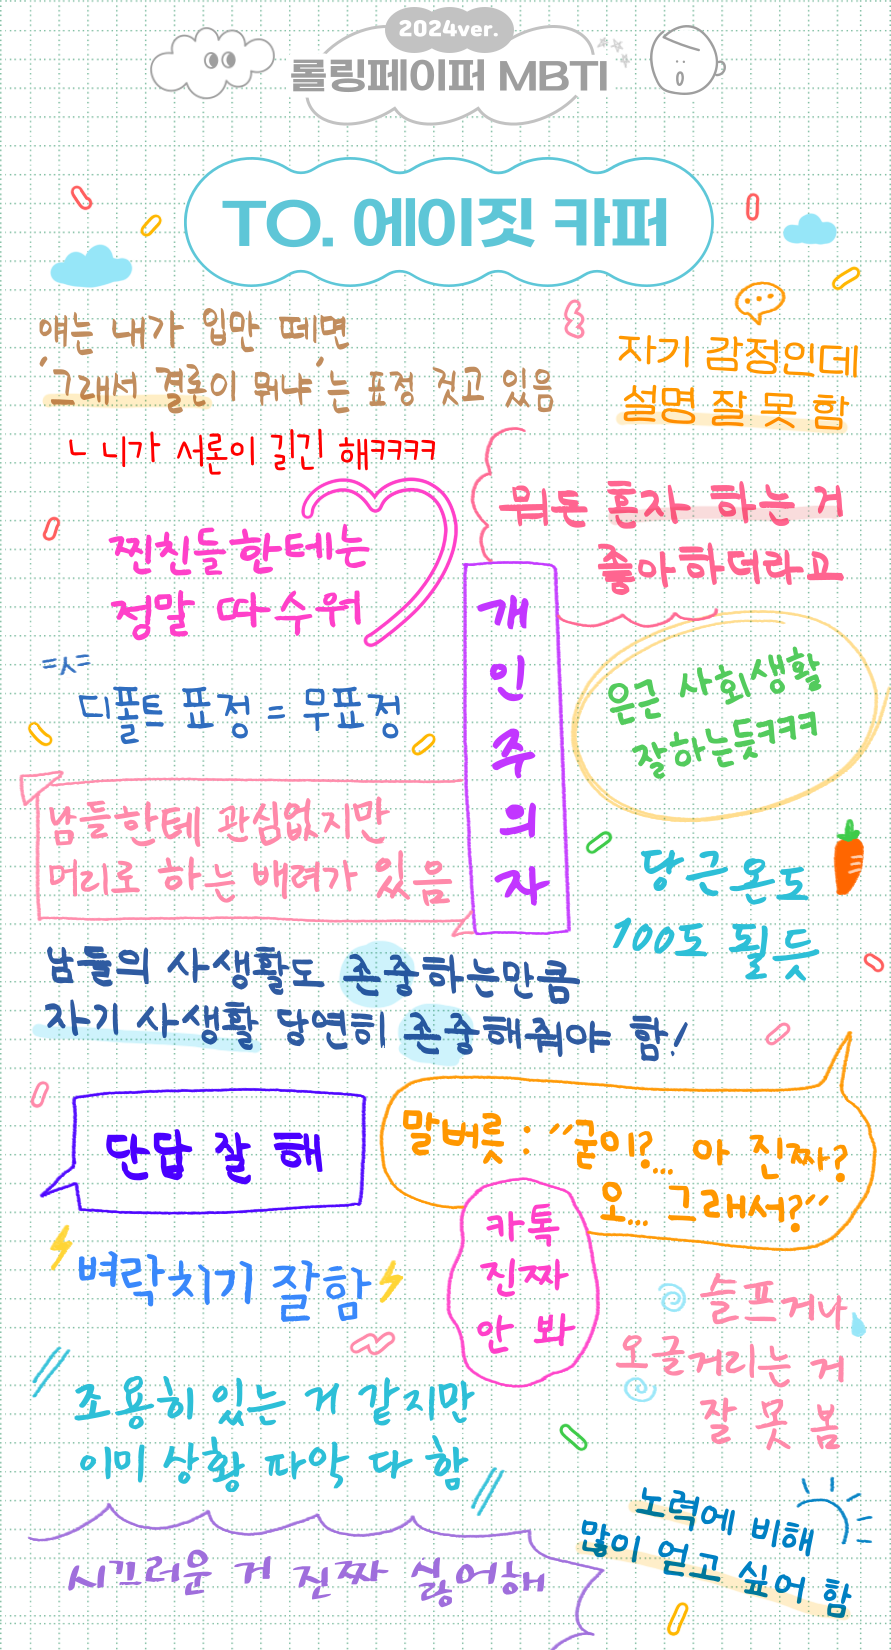 2024ver.
롤링페이퍼 MBTI
TO. 에이짓 카퍼
얘는 내가 입만 떼면
'그래서 결론이 뭐냐'는 표정 짓고 있음
ㄴ 니가 서론이 길긴 해ㅋㅋㅋㅋ
자기 감정인데
설명 잘 못 함
뭐든 혼자 하는 거
좋아하더라고
찐친들한테는
정말 따수워
개
인
주
의
자
은근 사회생활
잘하는듯ㅋㅋㅋ
=ㅅ=
디폴트 표정 = 무표정
남들한테 관심없지만
머리로 하는 배려가 있음
당근온도
100도 될듯
남들의 사생활도 존중하는만큼
자기 사생활 당연히 존중해줘야 함!
단답 잘 해
말버릇 : "굳이?... 아 진짜?
오... 그래서?"
카톡
진짜
안 봐
벼락치기 잘함
슬프거나
오글거리는 거
잘 못 봄
조용히 있는 거 같지만
이미 상황 파악 다 함
노력에 비해
많이 얻고 싶어 함
시끄러운 거 진짜 싫어해